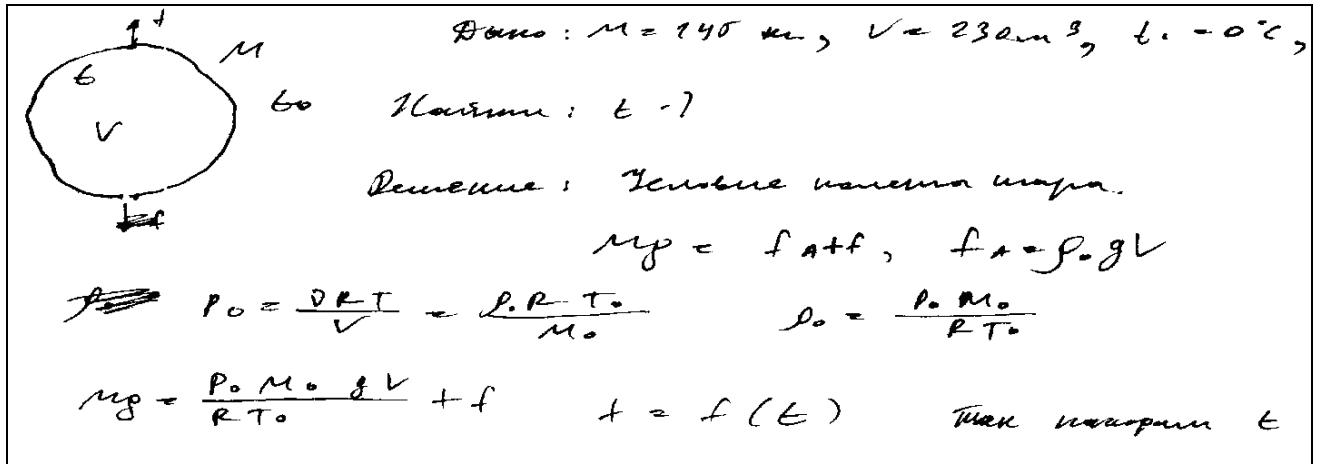 Дано: M = 145 кг, V = 230 м³, t₀ = 0°C,
f
t
M
V
t₀
Найти: t - ?
Решение: Условие полета шара.
Mg = f_A + f, f_A = ρ₀gV
P₀ = νRT/V = ρ₀RT₀/M₀ ρ₀ = P₀M₀/RT₀
Mg = P₀M₀gV/RT₀ + f f = f(t) Так находим t